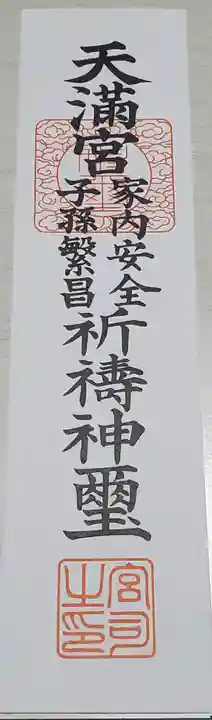 天満宮
家内安全
子孫繁昌
祈禱神璽
宮司之印